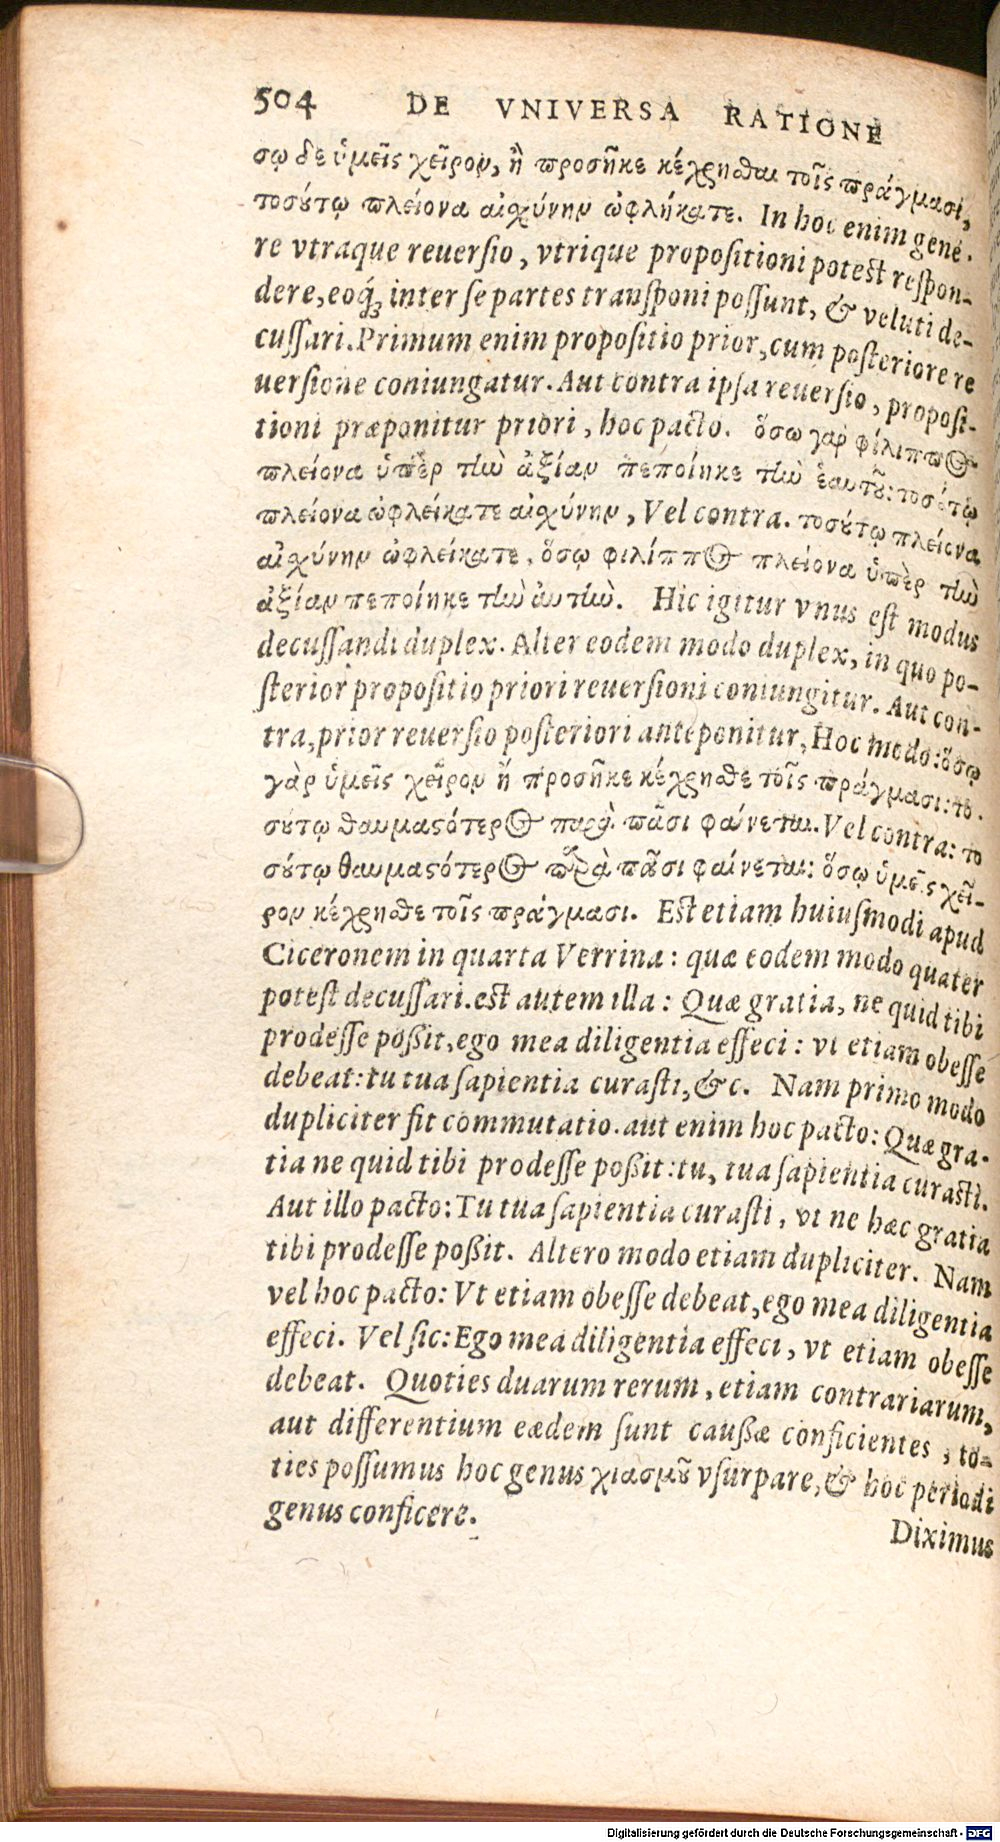 504 DE VNIVERSA RATIONE
σῳ δε ὑμεῖς χεῖρον, ἢ προσῆκε κέχρησθαι τοῖς πράγμασι,
τοσούτῳ πλείονα αἰσχύνην ὠφλήκατε. In hoc enim gene-
re vtraque reuersio, vtrique propositioni potest respon-
dere, eoq́; inter se partes transponi possunt, & veluti de-
cussari. Primum enim propositio prior, cum posteriore re
uersione coniungatur. Aut contra ipsa reuersio, proposi-
tioni præponitur priori, hoc pacto. ὅσω γαρ φίλιππος
πλείονα ὑπὲρ τὴν ἀξίαν πεποίηκε τὴν ἑαυτοῦ: τοσούτῳ
πλείονα ὠφλείκατε αἰσχύνην, Vel contra. τοσούτῳ πλείονα
αἰσχύνην ὠφλείκατε, ὅσῳ φιλίππος πλείονα ὑπὲρ τὴν
ἀξίαν πεποίηκε τὴν ἀυτὴν. Hic igitur vnus est modus
decussandi duplex. Alter eodem modo duplex, in quo po-
sterior propositio priori reuersioni coniungitur. Aut con-
tra, prior reuersio posteriori anteponitur, Hoc modo: ὅσῳ
γὰρ ὑμεῖς χεῖρον ἢ προσῆκε κέχρησθε τοῖς πράγμασι: το-
σούτῳ θαυμαστότερος παρὰ πᾶσι φαίνεται. Vel contra: το
σούτῳ θαυμαστότερος παρὰ πᾶσι φαίνεται: ὅσῳ ὑμεῖς χεῖ-
ρον κέχρησθε τοῖς πράγμασι. Est etiam huiusmodi apud
Ciceronem in quarta Verrina: quæ eodem modo quater
potest decussari. est autem illa: Quæ gratia, ne quid tibi
prodesse poßit, ego mea diligentia effeci: vt etiam obesse
debeat: tu tua sapientia curasti, &c. Nam primo modo
dupliciter fit commutatio. aut enim hoc pacto: Quæ gra-
tia ne quid tibi prodesse poßit: tu, tua sapientia curasti.
Aut illo pacto: Tu tua sapientia curasti, vt ne hæc gratia
tibi prodesse poßit. Altero modo etiam dupliciter. Nam
vel hoc pacto: Vt etiam obesse debeat, ego mea diligentia
effeci. Vel sic: Ego mea diligentia effeci, vt etiam obesse
debeat. Quoties duarum rerum, etiam contrariarum,
aut differentium eædem sunt caußæ conficientes, to-
ties possumus hoc genus χιασμοῦ vsurpare, & hoc periodi
genus conficere.
Diximus
Digitalisierung gefördert durch die Deutsche Forschungsgemeinschaft - DFG